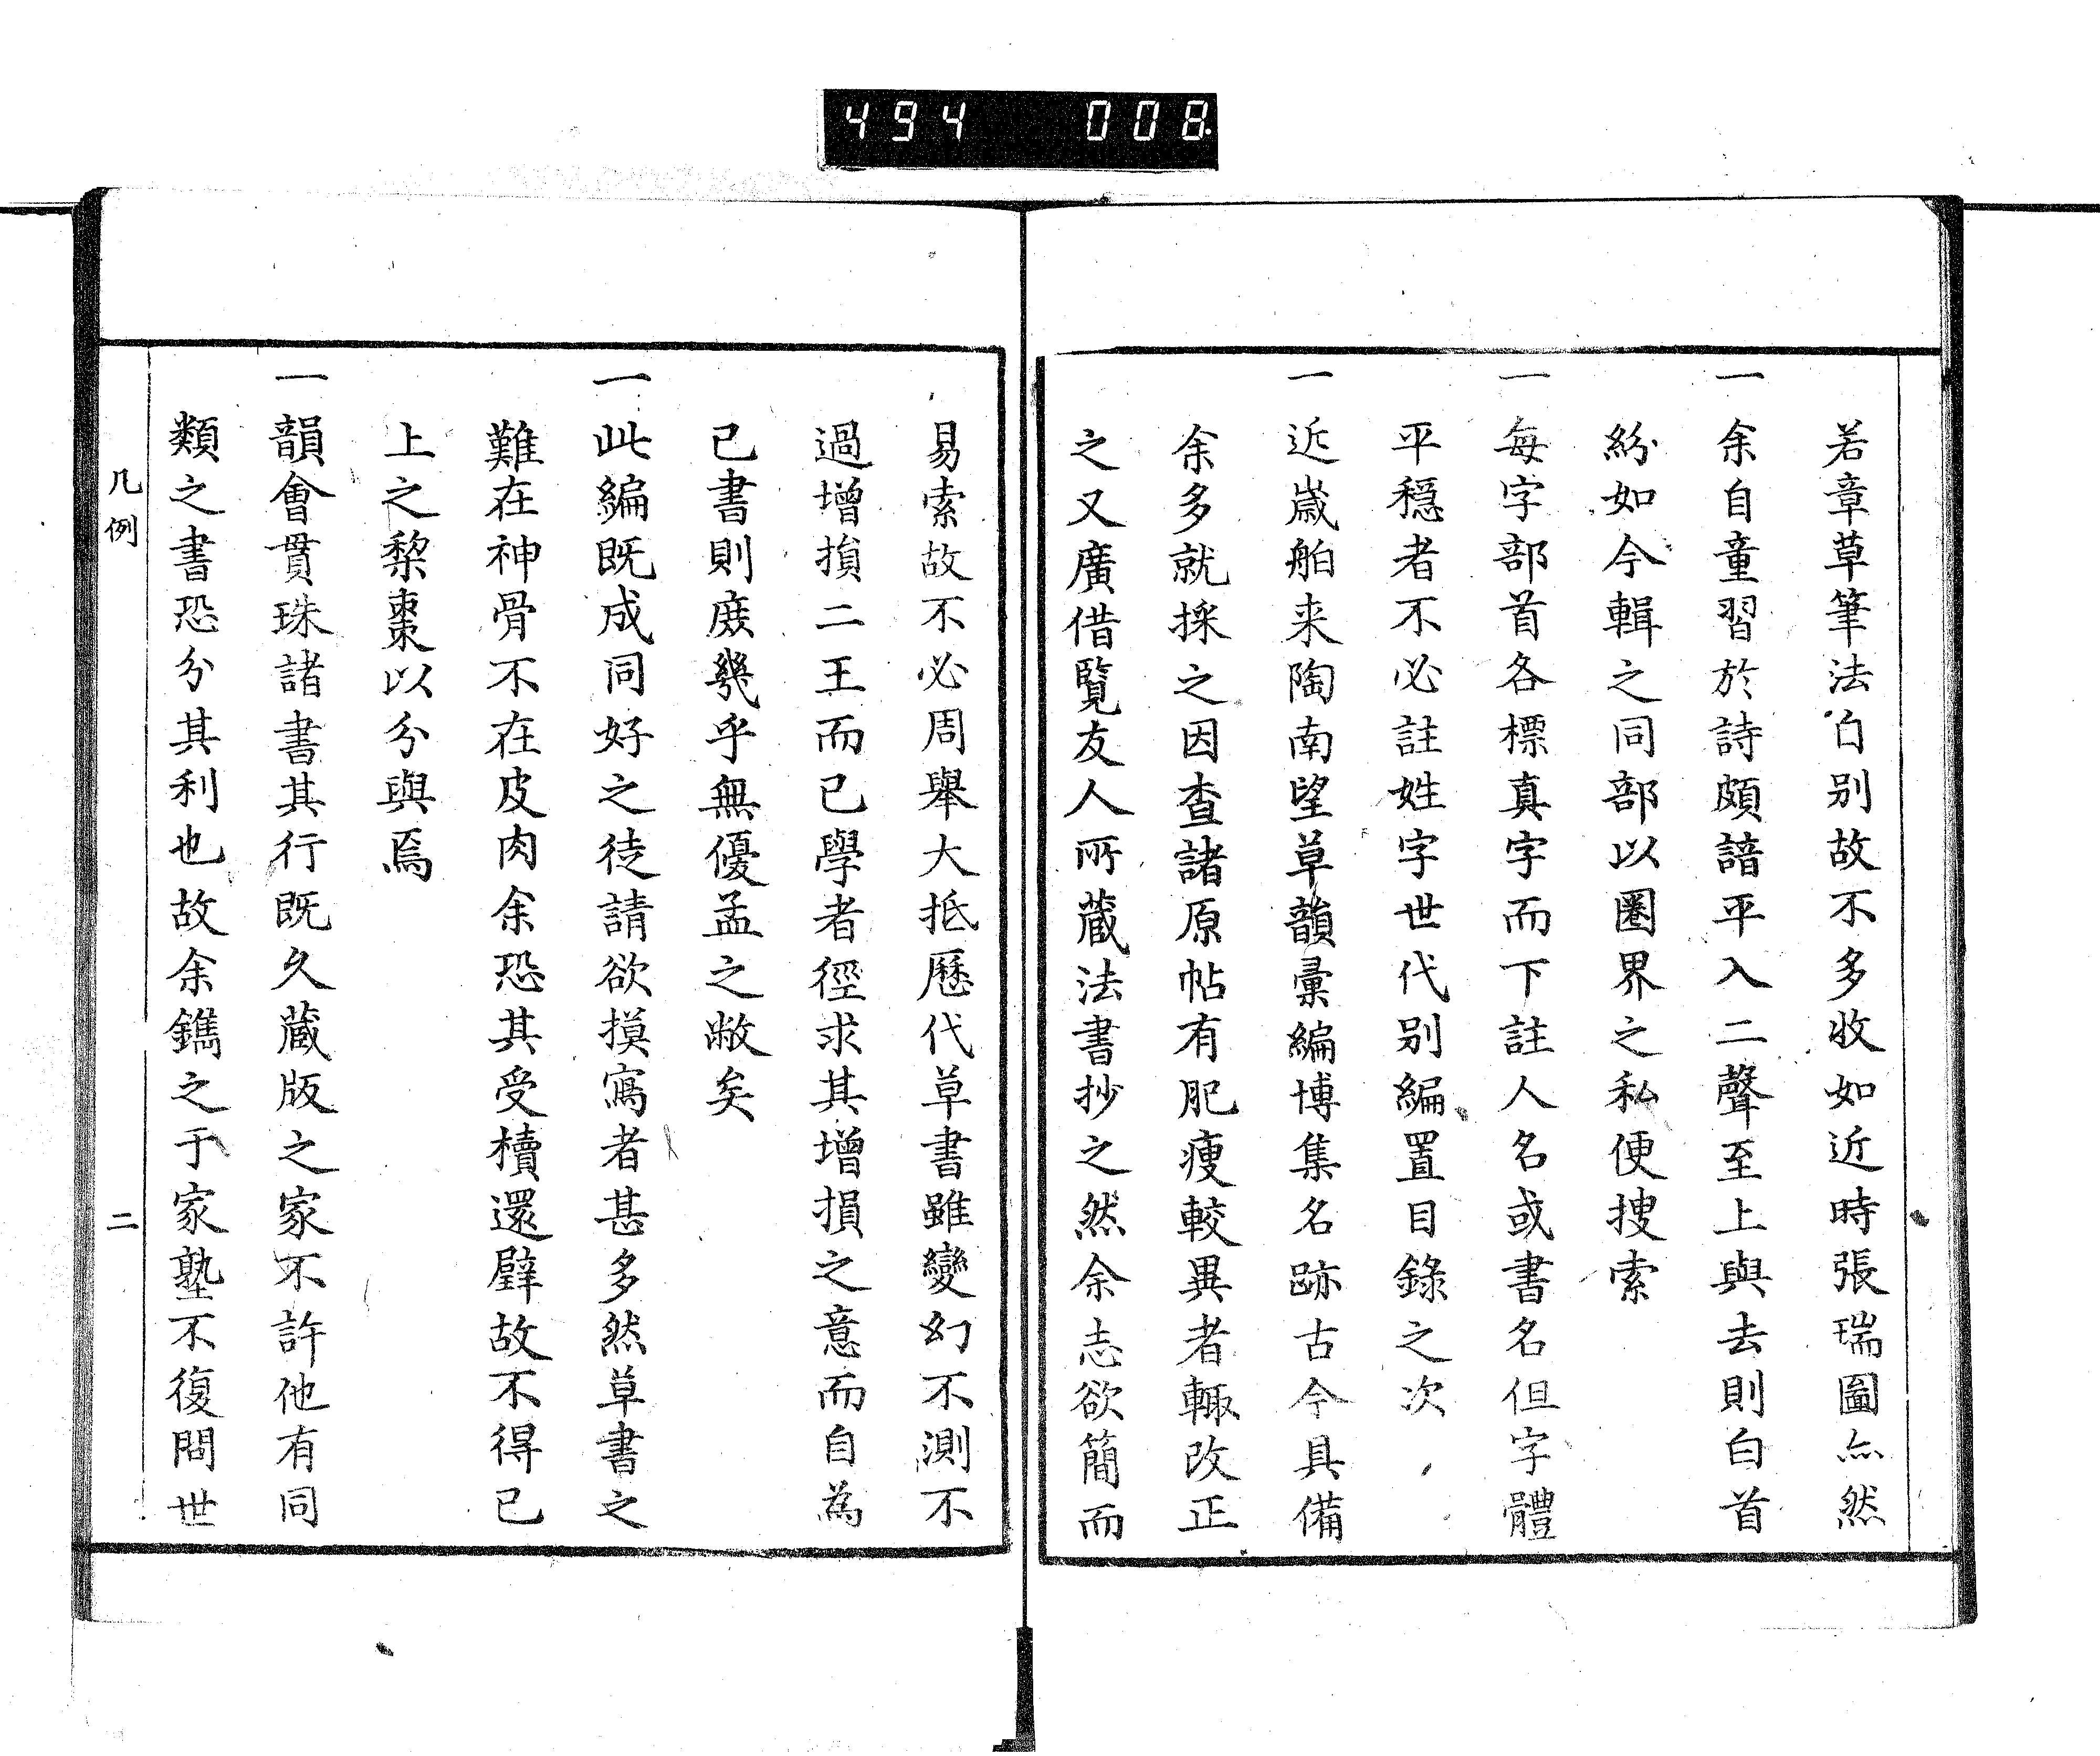 494 008.
若章草筆法自别故不多收如近時張瑞圖亦然
一余自童習於詩頗諳平入二聲至上與去則白首
紛如今輯之同部以圏界之私便搜索
一每字部首各標真字而下註人名或書名但字體
平穏者不必註姓字世代别編置目錄之次
一近嵗舶来陶南望草韻彙編博集名跡古今具備
余多就採之因査諸原帖有肥瘦較異者輙改正
之又廣借覧友人所蔵法書抄之然余志欲簡而
易索故不必周舉大抵歴代草書雖變幻不測不
過増損二王而已學者徑求其増損之意而自為
已書則庶幾乎無優孟之敝矣
一此編既成同好之徒請欲摸寫者甚多然草書之
難在神骨不在皮肉余恐其受櫝還璧故不得已
上之棃棗以分與焉
一韻會貫珠諸書其行既久蔵版之家不許他有同
類之書恐分其利也故余鐫之于家塾不復問世
凡例 二